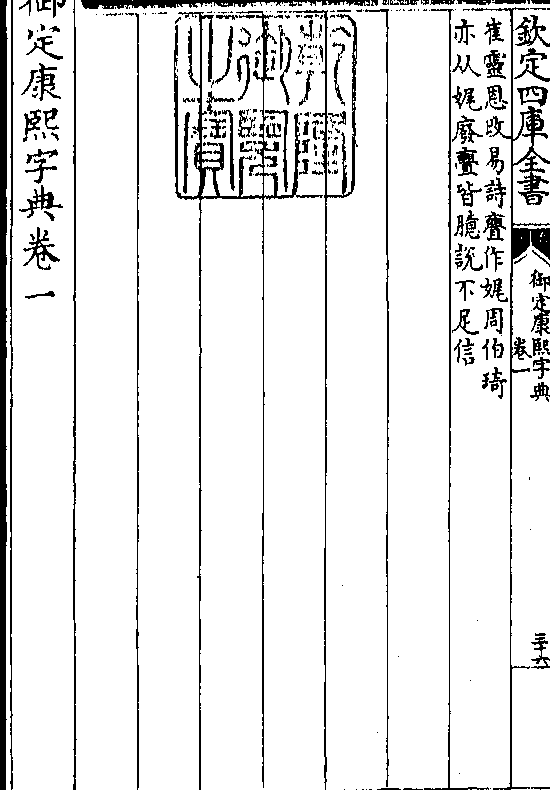 欽定四庫全書
御定康熙字典
卷一
三十六
崔靈恩改易詩亹作娓周伯琦
亦从娓廢亹皆臆說不足信
乾隆
御覽
之寶
御定康熙字典卷一